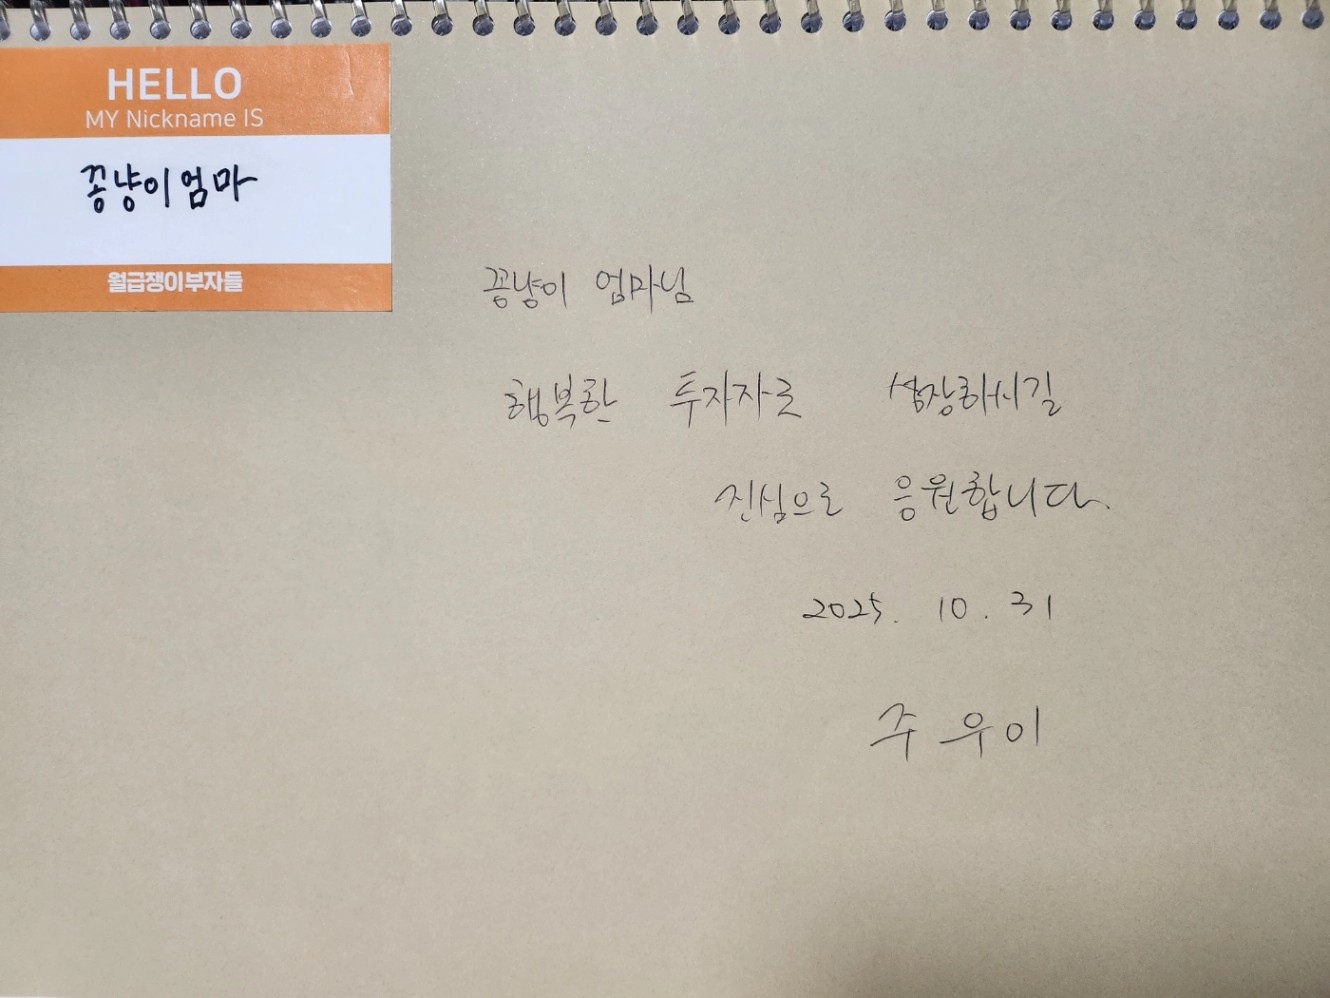 HELLO
MY Nickname IS
꽁냥이엄마
월급쟁이부자들
꽁냥이 엄마님
행복한 투자자로 성장하시길
진심으로 응원합니다.
2025. 10. 31
주우이